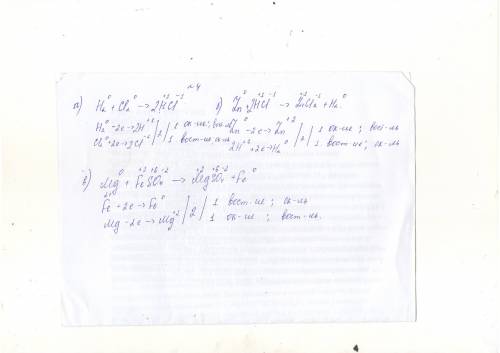 №4
а) H₂⁰ + Cl₂⁰ → 2H⁺¹Cl⁻¹
H₂⁰ - 2e → 2H⁺¹ | 2 | 1 ок-ие; вос-ль
Cl₂⁰ + 2e → 2Cl⁻¹ | 1 вост-ие, ок-ль
б) Zn⁰ + 2H⁺¹Cl⁻¹ → Zn⁺²Cl₂⁻¹ + H₂⁰
Zn⁰ - 2e → Zn⁺² | 2 | 1 ок-ие; вост-ль
2H⁺¹ + 2e → H₂⁰ | 1 вост-ие; ок-ль
в) Mg⁰ + Fe⁺²S⁺⁶O₄⁻² → Mg⁺²S⁺⁶O₄⁻² + Fe⁰
Fe⁺² + 2e → Fe⁰ | 2 | 1 вост-ие; ок-ль
Mg - 2e → Mg⁺² | 1 ок-ие; вост-ль.